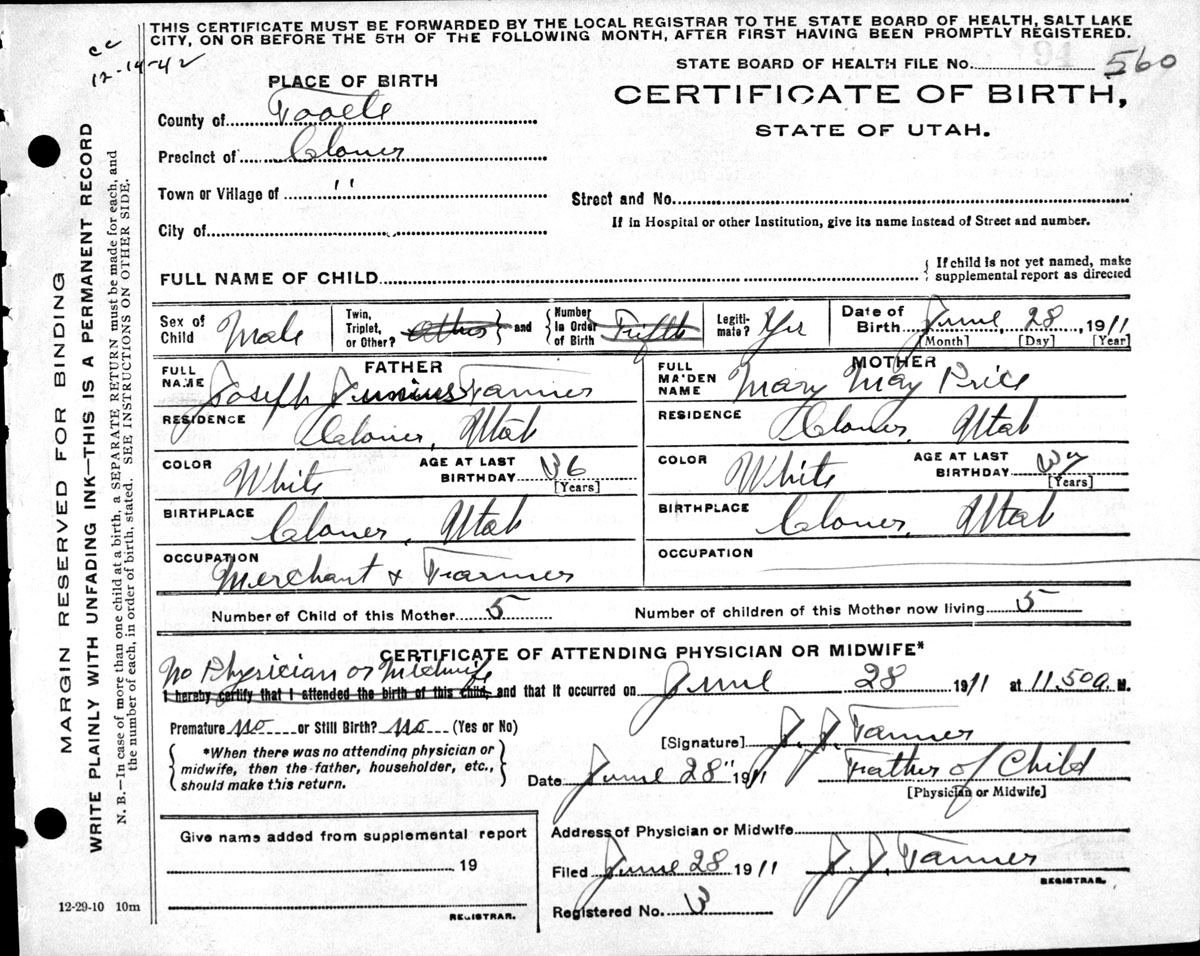 THIS CERTIFICATE MUST BE FORWARDED BY THE LOCAL REGISTRAR TO THE STATE BOARD OF HEALTH, SALT LAKE
CITY, ON OR BEFORE THE 5TH OF THE FOLLOWING MONTH, AFTER FIRST HAVING BEEN PROMPTLY REGISTERED.
cc
12-14-42
STATE BOARD OF HEALTH FILE No. 560
PLACE OF BIRTH
CERTIFICATE OF BIRTH,
STATE OF UTAH.
County of Tooele
Precinct of Clover
Town or Village of "
Street and No.
If in Hospital or other Institution, give its name instead of Street and number.
City of
FULL NAME OF CHILD { If child is not yet named, make
supplemental report as directed
Sex of Child Male
Twin, Triplet, or Other? } and { Number in Order of Birth
Legitimate? Yes
Date of Birth June 28, 1911
[Month] [Day] [Year]
FATHER
FULL NAME Joseph Junius Tanner
MOTHER
FULL MAIDEN NAME Mary May Price
RESIDENCE Clover, Utah
RESIDENCE Clover, Utah
COLOR White AGE AT LAST BIRTHDAY 36 [Years]
COLOR White AGE AT LAST BIRTHDAY [Years]
BIRTHPLACE Clover, Utah
BIRTHPLACE Clover, Utah
OCCUPATION Merchant & Farmer
OCCUPATION
Number of Child of this Mother 5 Number of children of this Mother now living 5
CERTIFICATE OF ATTENDING PHYSICIAN OR MIDWIFE*
No Physician or Midwife
I hereby certify that I attended the birth of this child, and that it occurred on June 28 1911 at 11.50 a. M.
Premature no or Still Birth? no (Yes or No)
{ *When there was no attending physician or
midwife, then the father, householder, etc.,
should make this return. }
[Signature] J. J. Tanner
Date June 28" 1911 Father of Child
[Physician or Midwife]
Give name added from supplemental report
19
REGISTRAR.
Address of Physician or Midwife
Filed June 28 1911 J. J. Tanner
REGISTRAR.
Registered No. 3
12-29-10 10m
MARGIN RESERVED FOR BINDING
WRITE PLAINLY WITH UNFADING INK—THIS IS A PERMANENT RECORD
N. B.—In case of more than one child at a birth, a SEPARATE RETURN must be made for each, and
the number of each, in order of birth, stated. SEE INSTRUCTIONS ON OTHER SIDE.